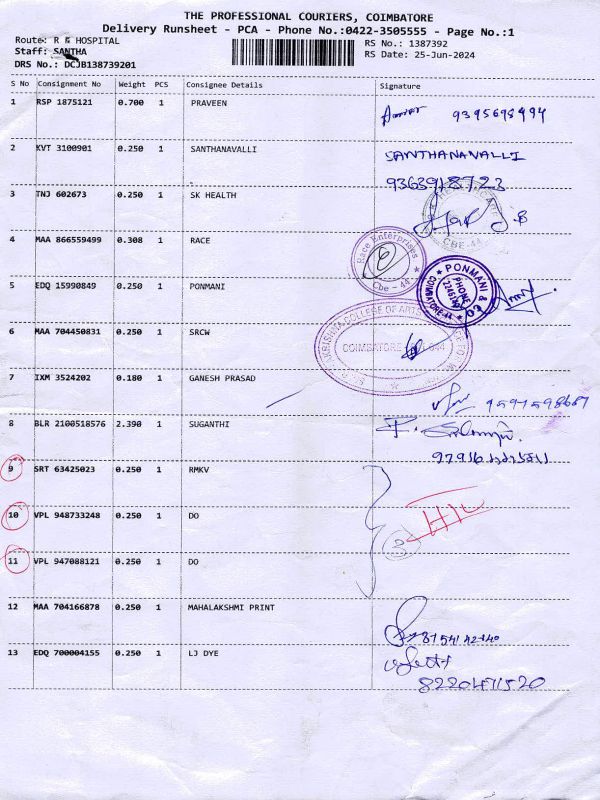 THE PROFESSIONAL COURIERS, COIMBATORE
Delivery Runsheet - PCA - Phone No.:0422-3505555 - Page No.:1
Route: R K HOSPITAL
Staff: SANTHA
DRS No.: DCJB138739201
RS No.: 1387392
RS Date: 25-Jun-2024
S No Consignment No Weight PCS Consignee Details Signature
1 RSP 1875121 0.700 1 PRAVEEN 9395695494
2 KVT 3100901 0.250 1 SANTHANAVALLI SANTHANAVALLI
9363918723
3 TNJ 602673 0.250 1 SK HEALTH
CBE-44
4 MAA 866559499 0.308 1 RACE
Race Enterprises
Cbe - 44
6
5 EDQ 15990849 0.250 1 PONMANI
PONMANI & CO
PHONE
COIMBATORE-44
6 MAA 704450831 0.250 1 SRCW
COLLEGE OF ARTS
COIMBATORE
7 IXM 3524202 0.180 1 GANESH PRASAD
8 BLR 2100518576 2.390 1 SUGANTHI
9 SRT 63425023 0.250 1 RMKV
10 VPL 948733248 0.250 1 DO
3
11 VPL 947088121 0.250 1 DO
12 MAA 704166878 0.250 1 MAHALAKSHMI PRINT
13 EDQ 700004155 0.250 1 LJ DYE
8220471520